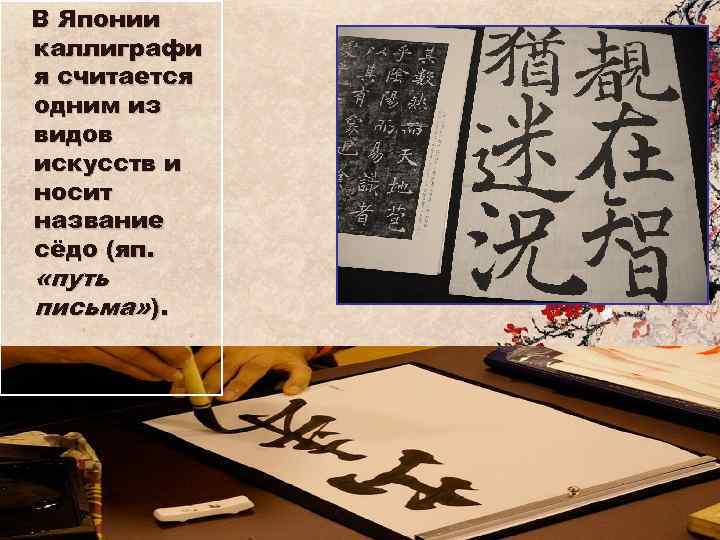 В Японии
каллиграфи
я считается
одним из
видов
искусств и
носит
название
сёдо (яп.
«путь
письма»).
覩在智
猶迷況
其數然而天地苞
乎陰陽而易識者
以其有像也陰